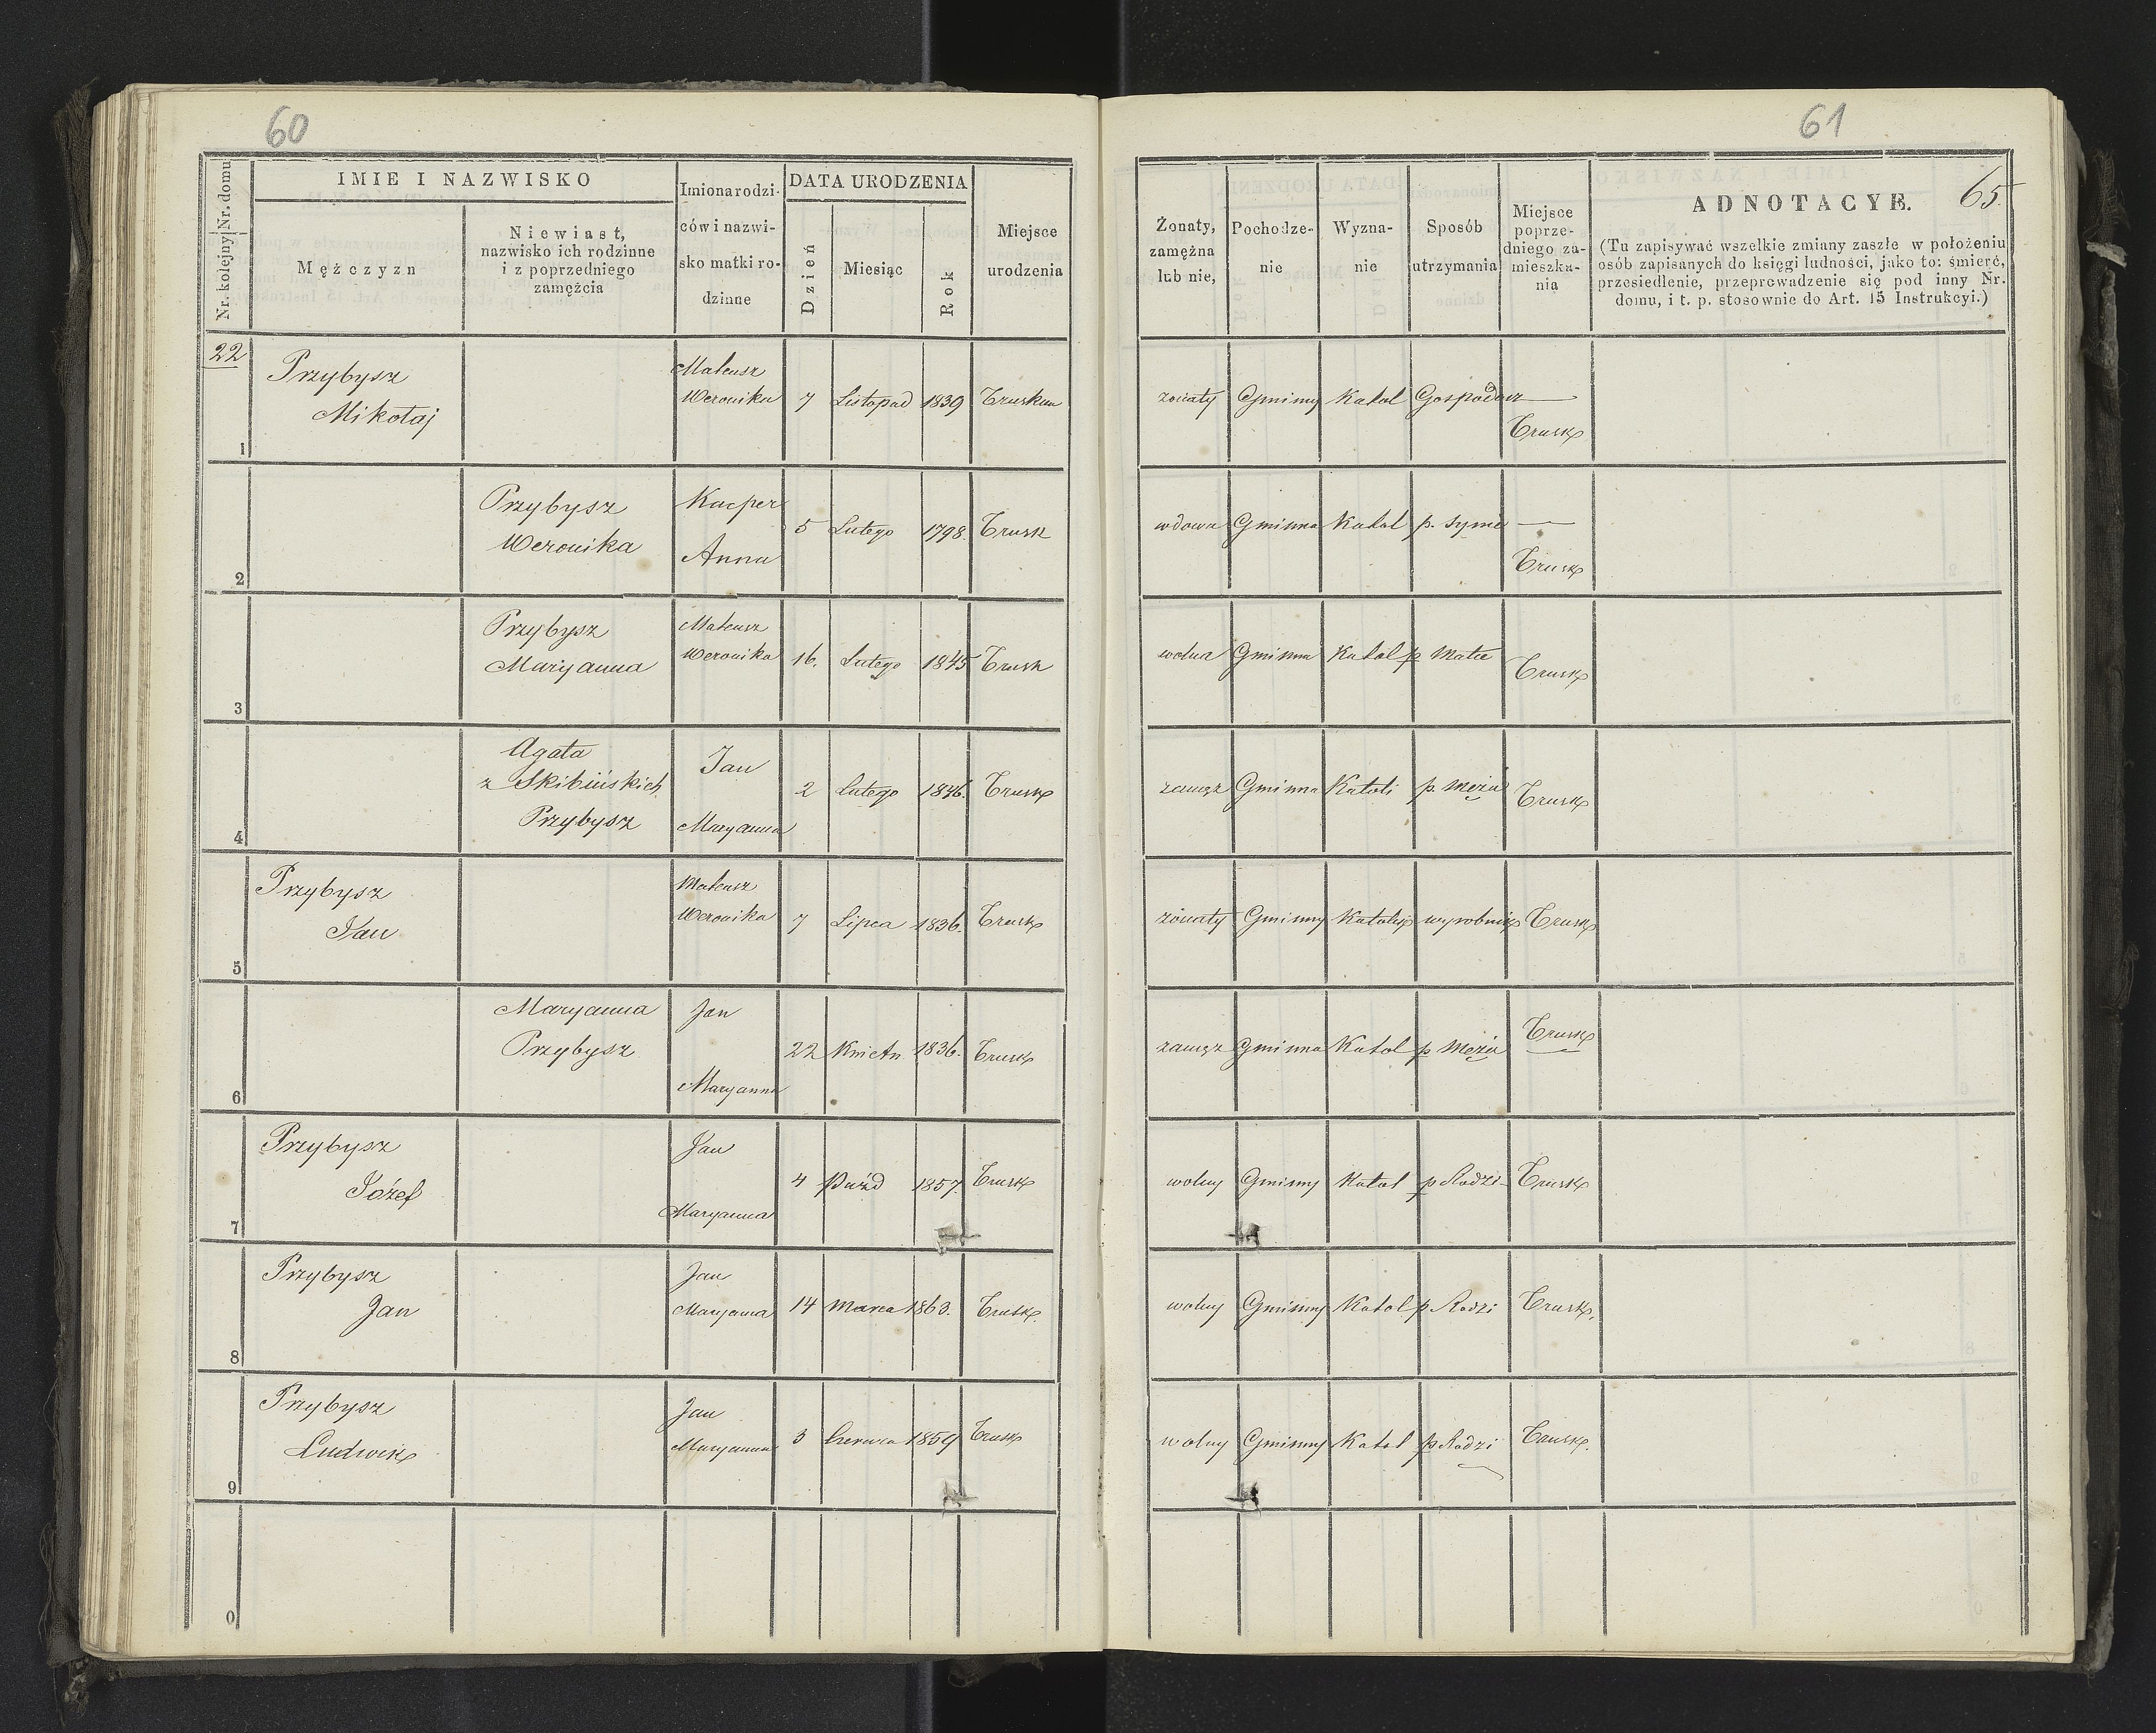 60
61
65.
Nr. kolejny Nr. domu
IMIE I NAZWISKO
Mężczyzn
Niewiast,
nazwisko ich rodzinne
i z poprzedniego
zamężcia
Imiona rodzi-
ców i nazwi-
sko matki ro-
dzinne
DATA URODZENIA
Dzień
Miesiąc
Rok
Miejsce
urodzenia
Żonaty,
zamężna
lub nie,
Pochodze-
nie
Wyzna-
nie
Sposób
utrzymania
Miejsce
poprze-
dniego za-
mieszka-
nia
ADNOTACYE.
(Tu zapisywać wszelkie zmiany zaszłe w położeniu
osób zapisanych do księgi ludności, jako to: śmierć,
przesiedlenie, przeprowadzenie się pod inny Nr.
domu, i t. p. stosownie do Art. 15 Instrukcyi.)
22
Przybysz
Mikołaj
Mateusz
Weronika
7 Listopad 1839
żonaty Gminny Katol Gospodarz
Trusk
1
Przybysz
Weronika
Kacper
Anna
5 Lutego 1798. Trusk
wdowa Gminna Katol p. synie
Trusk
2
Przybysz
Maryanna
Mateusz
Weronika
16. Lutego 1845 Trusk
wolna Gminna Katol p Matce Trusk
3
Agata
z Skibińskich
Przybysz
Jan
Maryanna
2 Lutego 1846. Trusk
zamęz Gminna Katoli p. Mężu Trusk
4
Przybysz
Jan
Mateusz
Weronika
7 Lipca 1836. Trusk
żonaty Gminny Katolik wyrobnik Trusk
5
Maryanna
Przybysz
Jan
Maryanna
22 Kwietn 1836. Trusk
zamęz Gminna Katol p Mężu Trusk
6
Przybysz
Józef
Jan
Maryanna
4 Paźd 1857. Trusk
wolny Gminny Katol p Rodzi- Trusk
7
Przybysz
Jan
Jan
Maryanna
14 Marca 1863. Trusk.
wolny Gminny Katol p. Rodzi Trusk.
8
Przybysz
Ludwik
Jan
Maryanna
3 Czerwca 1859 Trusk
wolny Gminny Katol p Rodzi Trusk.
9
0